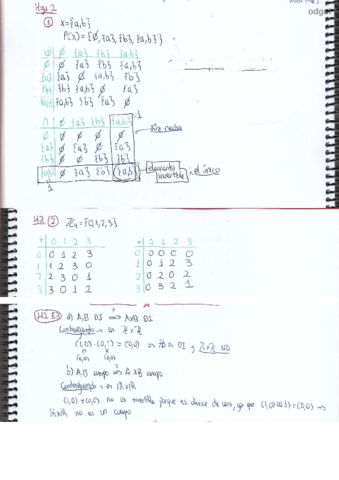 Hoja 2
① X={a,b}
P(X)={∅,{a},{b},{a,b}}
∪ ∅ {a} {b} {a,b}
∅ ∅ {a} {b} {a,b}
{a} {a} ∅ {a,b} {b}
{b} {b} {a,b} ∅ {a}
{a,b} {a,b} {b} {a} ∅
∩ ∅ {a} {b} {a,b} 1
∅ ∅ ∅ ∅ ∅
{a} ∅ {a} ∅ {a}
{b} ∅ ∅ {b} {b}
{a,b} ∅ {a} {b} {a,b} elemento invertible, el único
1
H2 ② ℤ₄={0,1,2,3}
+ 0 1 2 3
0 0 1 2 3
1 1 2 3 0
2 2 3 0 1
3 3 0 1 2
• 0 1 2 3
0 0 0 0 0
1 0 1 2 3
2 0 2 0 2
3 0 3 2 1
H2 a) A,B DI ⇒? AxB DI
Contraejemplo → en ℤxℤ
(1,0)·(0,1) = (0,0) ⇒ ℤ es DI, ℤxℤ NO
(0,0) (0,0)
b) A,B cuerpo ⇒? AxB cuerpo
Contraejemplo: en ℝxℝ
(1,0)≠(0,0) no es invertible porque es divisor de cero, ya que (1,0)(0,3)=(0,0) ⇒
ℝxℝ no es un cuerpo